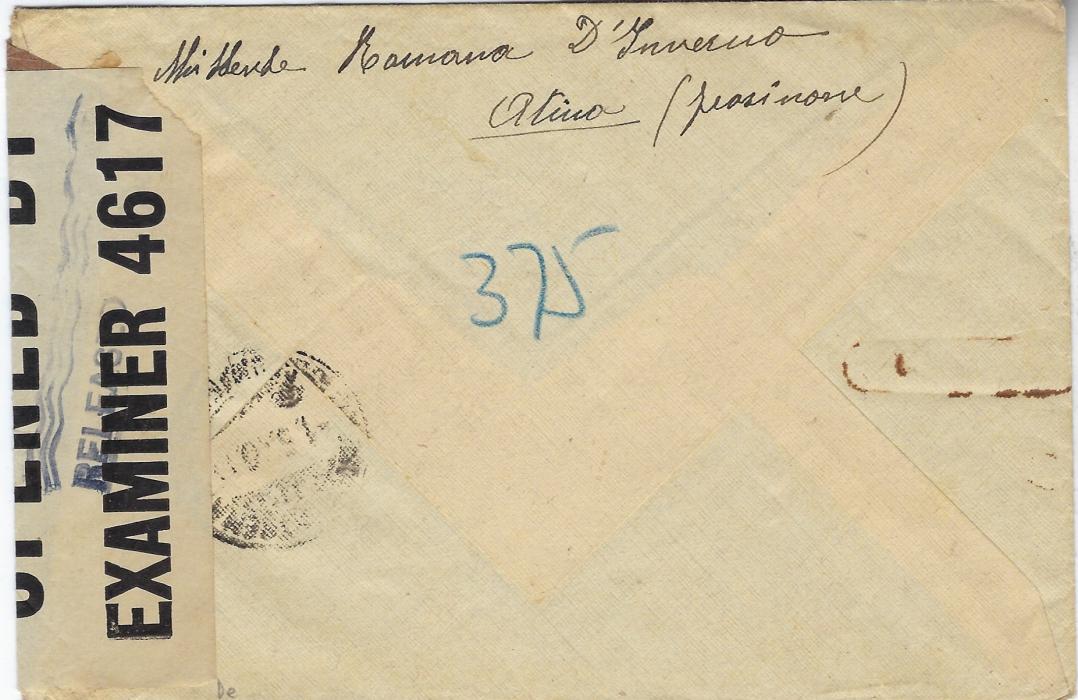 Mittende Romana D'Inverno
Atina (Frosinone)
375
OPENED BY
EXAMINER 4617
RELEAS
De